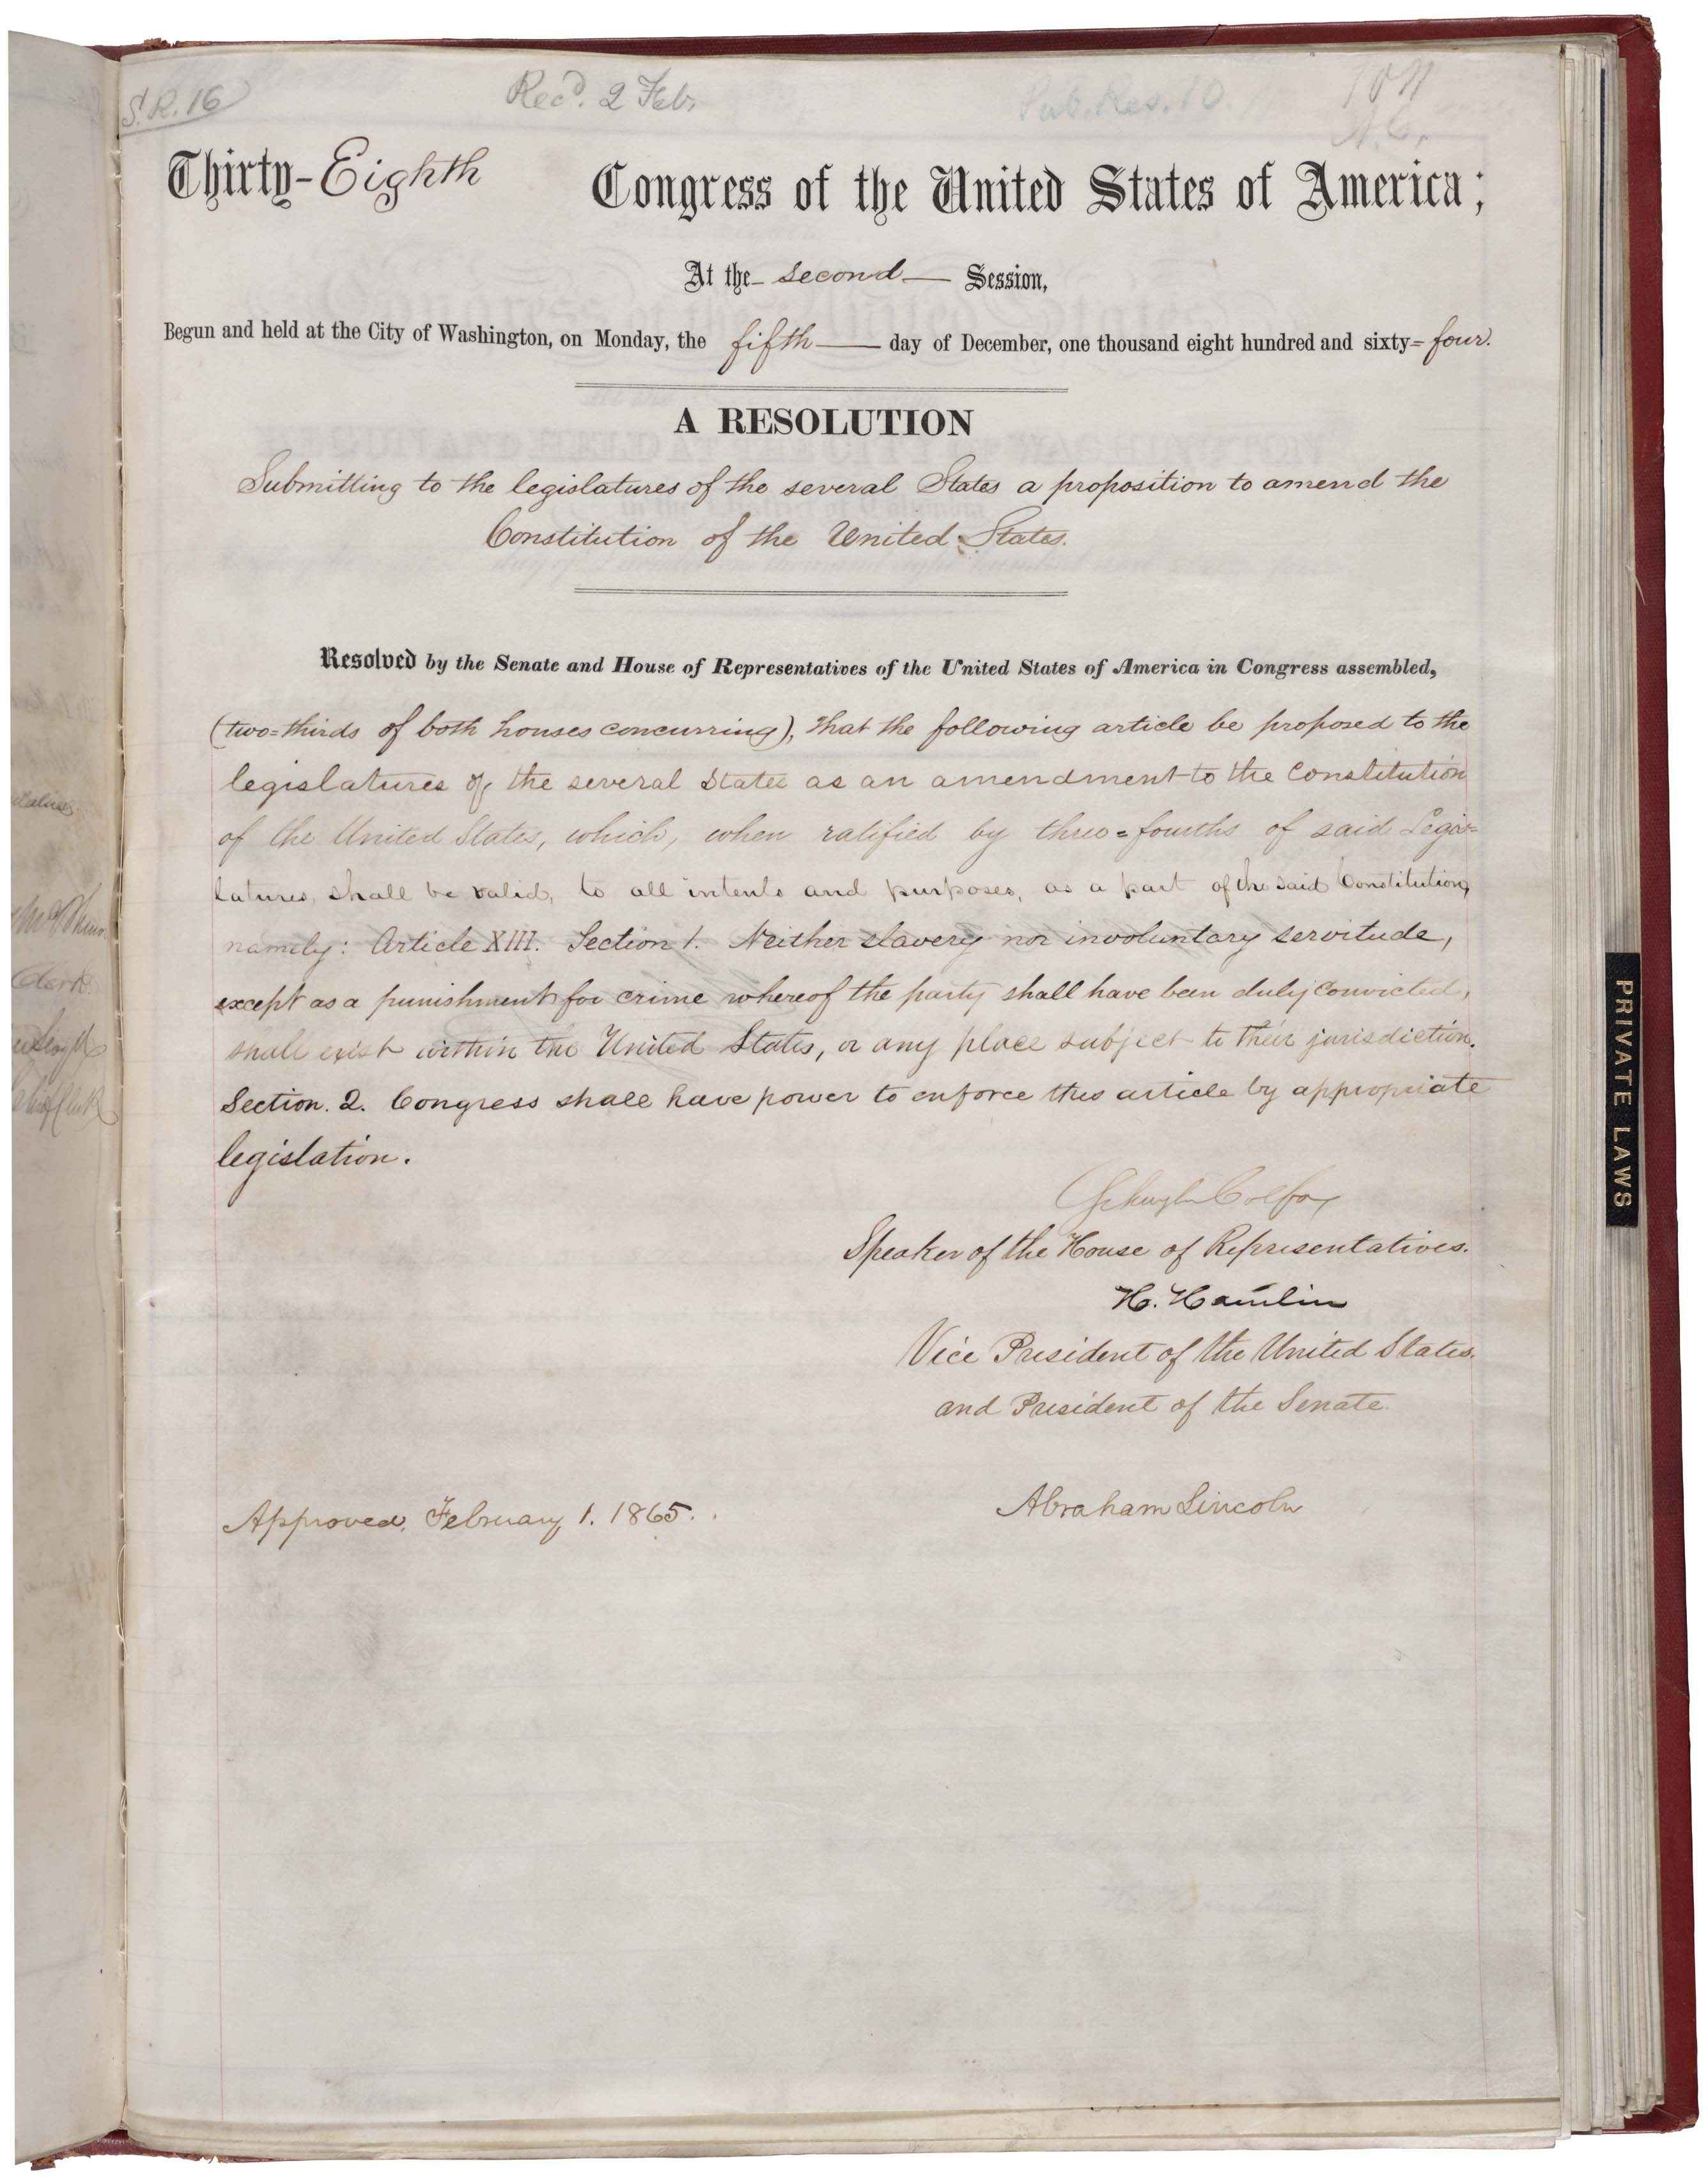 S.R. 16
Rec'd. 2 Feb.
Pub. Res. 10.
Thirty-Eighth Congress of the United States of America;
At the second Session,
Begun and held at the City of Washington, on Monday, the fifth day of December, one thousand eight hundred and sixty-four.
A RESOLUTION
Submitting to the legislatures of the several States a proposition to amend the
Constitution of the United States.
Resolved by the Senate and House of Representatives of the United States of America in Congress assembled,
(two-thirds of both houses concurring), that the following article be proposed to the
legislatures of the several States as an amendment to the Constitution
of the United States, which, when ratified by three-fourths of said Legis-
latures, shall be valid, to all intents and purposes, as a part of the said Constitution,
namely: Article XIII. Section 1. Neither slavery nor involuntary servitude,
except as a punishment for crime whereof the party shall have been duly convicted,
shall exist within the United States, or any place subject to their jurisdiction.
Section. 2. Congress shall have power to enforce this article by appropriate
legislation.
Schuyler Colfax
Speaker of the House of Representatives.
H. Hamlin
Vice President of the United States.
and President of the Senate.
Approved, February 1. 1865.
Abraham Lincoln
PRIVATE LAWS
Clerk.